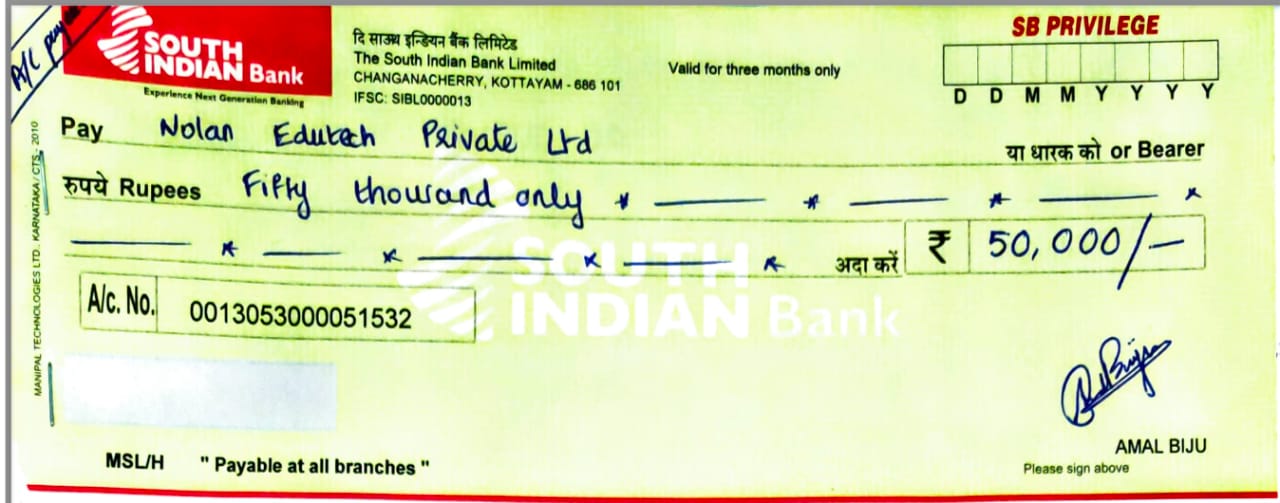 A/C payee
SOUTH
INDIAN Bank
Experience Next Generation Banking
दि साउथ इन्डियन बैंक लिमिटेड
The South Indian Bank Limited
CHANGANACHERRY, KOTTAYAM - 686 101
IFSC: SIBL0000013
Valid for three months only
SB PRIVILEGE
D D M M Y Y Y Y
Pay Nolan Edutech Private Ltd
या धारक को or Bearer
रुपये Rupees Fifty thousand only * — * — * — *
— * — * — * — *
अदा करें ₹ 50,000/-
A/c. No. 0013053000051532
SOUTH
INDIAN Bank
MANIPAL TECHNOLOGIES LTD., KARNATAKA/CTS - 2010
AMAL BIJU
Please sign above
MSL/H " Payable at all branches "